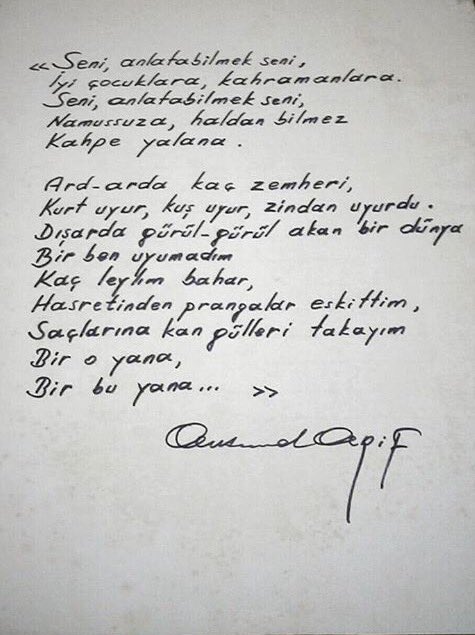 «Seni, anlatabilmek seni,
İyi çocuklara, kahramanlara.
Seni, anlatabilmek seni,
Namussuza, haldan bilmez
Kahpe yalana.
Ard-arda kaç zemheri,
Kurt uyur, kuş uyur, zindan uyurdu.
Dışarda gürül-gürül akan bir dünya
Bir ben uyumadım
Kaç leylim bahar,
Hasretinden prangalar eskittim,
Saçlarına kan gülleri takayım
Bir o yana,
Bir bu yana... »